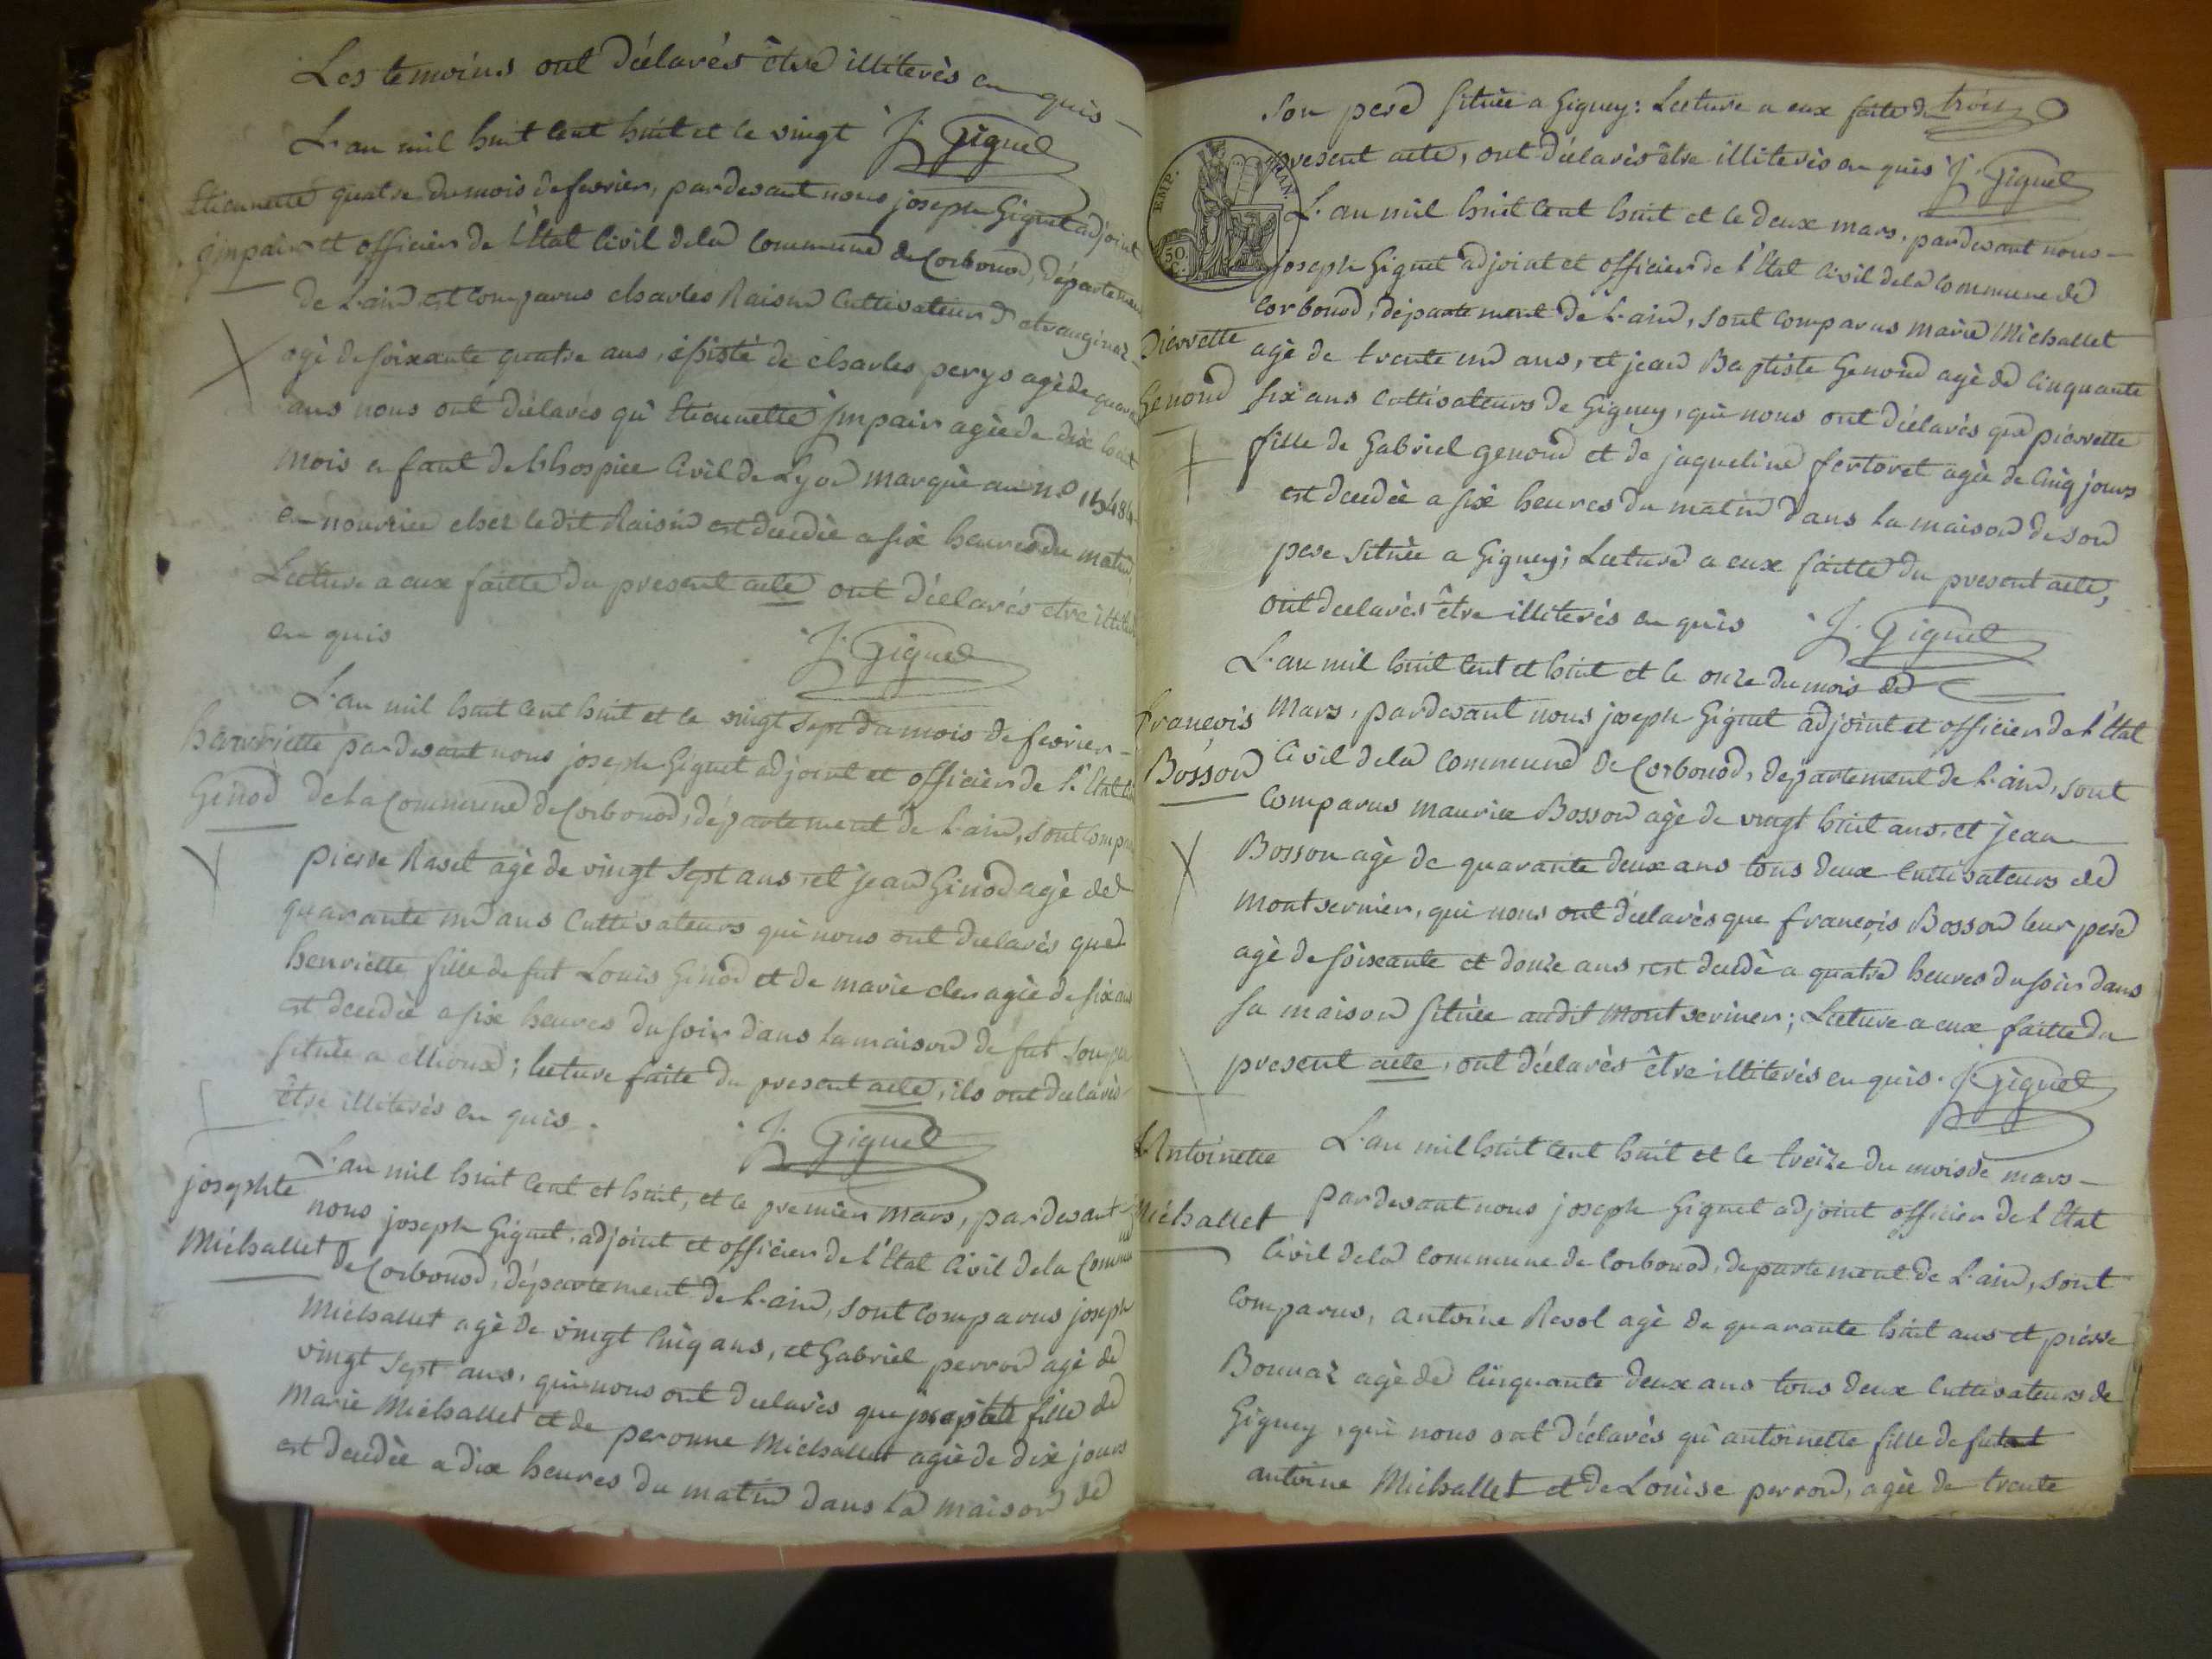 Les temoins ont déclarés être illiterès en quis —
L'an mil huit cent huit et le vingt J. Giguet
Etiennette quatre du mois de fevrier, pardesant nous joseph Giguet adjoint
jmpair et officier de l'Etat Civil de la Commune de Corbonod, département
de L'ain est comparus charles Raisin Cultivateur d'etranginaz
agé de soixante quatre ans, assisté de charles perys agé de quara
ans nous ont déclarés qu'Etiennette jmpair agée de dix huit
mois enfant de l'hospice Civil de Lyon marqué au n.o
en nourrice chez le dit Raisin est decedée a six heures du matin,
Lecture a eux faitte du present acte ont déclarés etre
en quis J. Giguet
L'an mil huit cent huit et le vingt sept du mois de fevrier —
henriette pardesant nous joseph Giguet adjoint et officier de l'Etat
Genod de la Commune de Corbonod, département de L'ain, sont comp
pierre Ravet agé de vingt sept ans, et jean Genod agé de
quarante un ans Cultivateurs qui nous ont declarés que
henriette fille de fut Louis Genod et de marie cler agée de six ans
est decedée a six heures du soir dans la maison de fut son
située a ; lecture faite du present acte, ils ont declaré
être illiterés en quis. J. Giguet
josephte L'an mil huit cent et huit, et le premier mars, pardesant
nous joseph Giguet, adjoint et officier de l'Etat Civil de la Commune
Michallet de Corbonod, département de L'ain, sont comparus joseph
Michallet agé de vingt cinq ans, et Gabriel perron agé de
vingt sept ans, qui nous ont declarés que josephte fille de
marie Michallet et de peronne Michallet agée de dix jours
est decedée a dix heures du matin dans la maison de
son pere située a Gigney: Lecture a eux faite du trois
present acte, ont déclarés être illiterés en quis J. Giguet
EMP. FRAN.
50 C.
L'an mil huit cent huit et le deux mars, pardesant nous —
joseph Giguet adjoint et officier de l'Etat Civil de la Commune de
Corbonod, département de L'ain, sont comparus marie Michallet
pierrette agé de trente un ans, et jean Baptiste Genoud agé de cinquante
Genoud six ans Cultivateurs de Gigney, qui nous ont déclarés que pierrette
fille de Gabriel genoud et de jaqueline fertoret agée de cinq jours
est decedée a six heures du matin dans la maison de son
pere située a Gigney; Lecture a eux faitte du present acte,
ont declarés être illiterés en quis J. Giguet
L'an mil huit cent et huit et le onze du mois de
françois mars, pardesant nous joseph Giguet adjoint et officier de l'Etat
Bosson Civil de la Commune de Corbonod, département de L'ain, sont
Comparus maurice Bosson agé de vingt huit ans, et jean
Bosson agé de quarante deux ans tous deux Cultivateurs de
montvernier, qui nous ont déclarés que françois Bosson leur pere
agé de soixante et douze ans, est decedé a quatre heures du soir dans
sa maison située audit montvernier; Lecture a eux faitte du
present acte, ont déclarés être illiterés en quis. J. Giguet
Antoinette L'an mil huit cent huit et le treize du mois de mars —
Michallet pardesant nous joseph Giguet adjoint officier de l'Etat
Civil de la Commune de Corbonod, département de L'ain, sont
Comparus, antoine Revol agé de quarante huit ans et pierre
Bonnaz agé de cinquante deux ans tous deux Cultivateurs de
Gigney, qui nous ont déclarés qu'antoinette fille de fut
antoine Michallet et de Louise perron, agée de trente